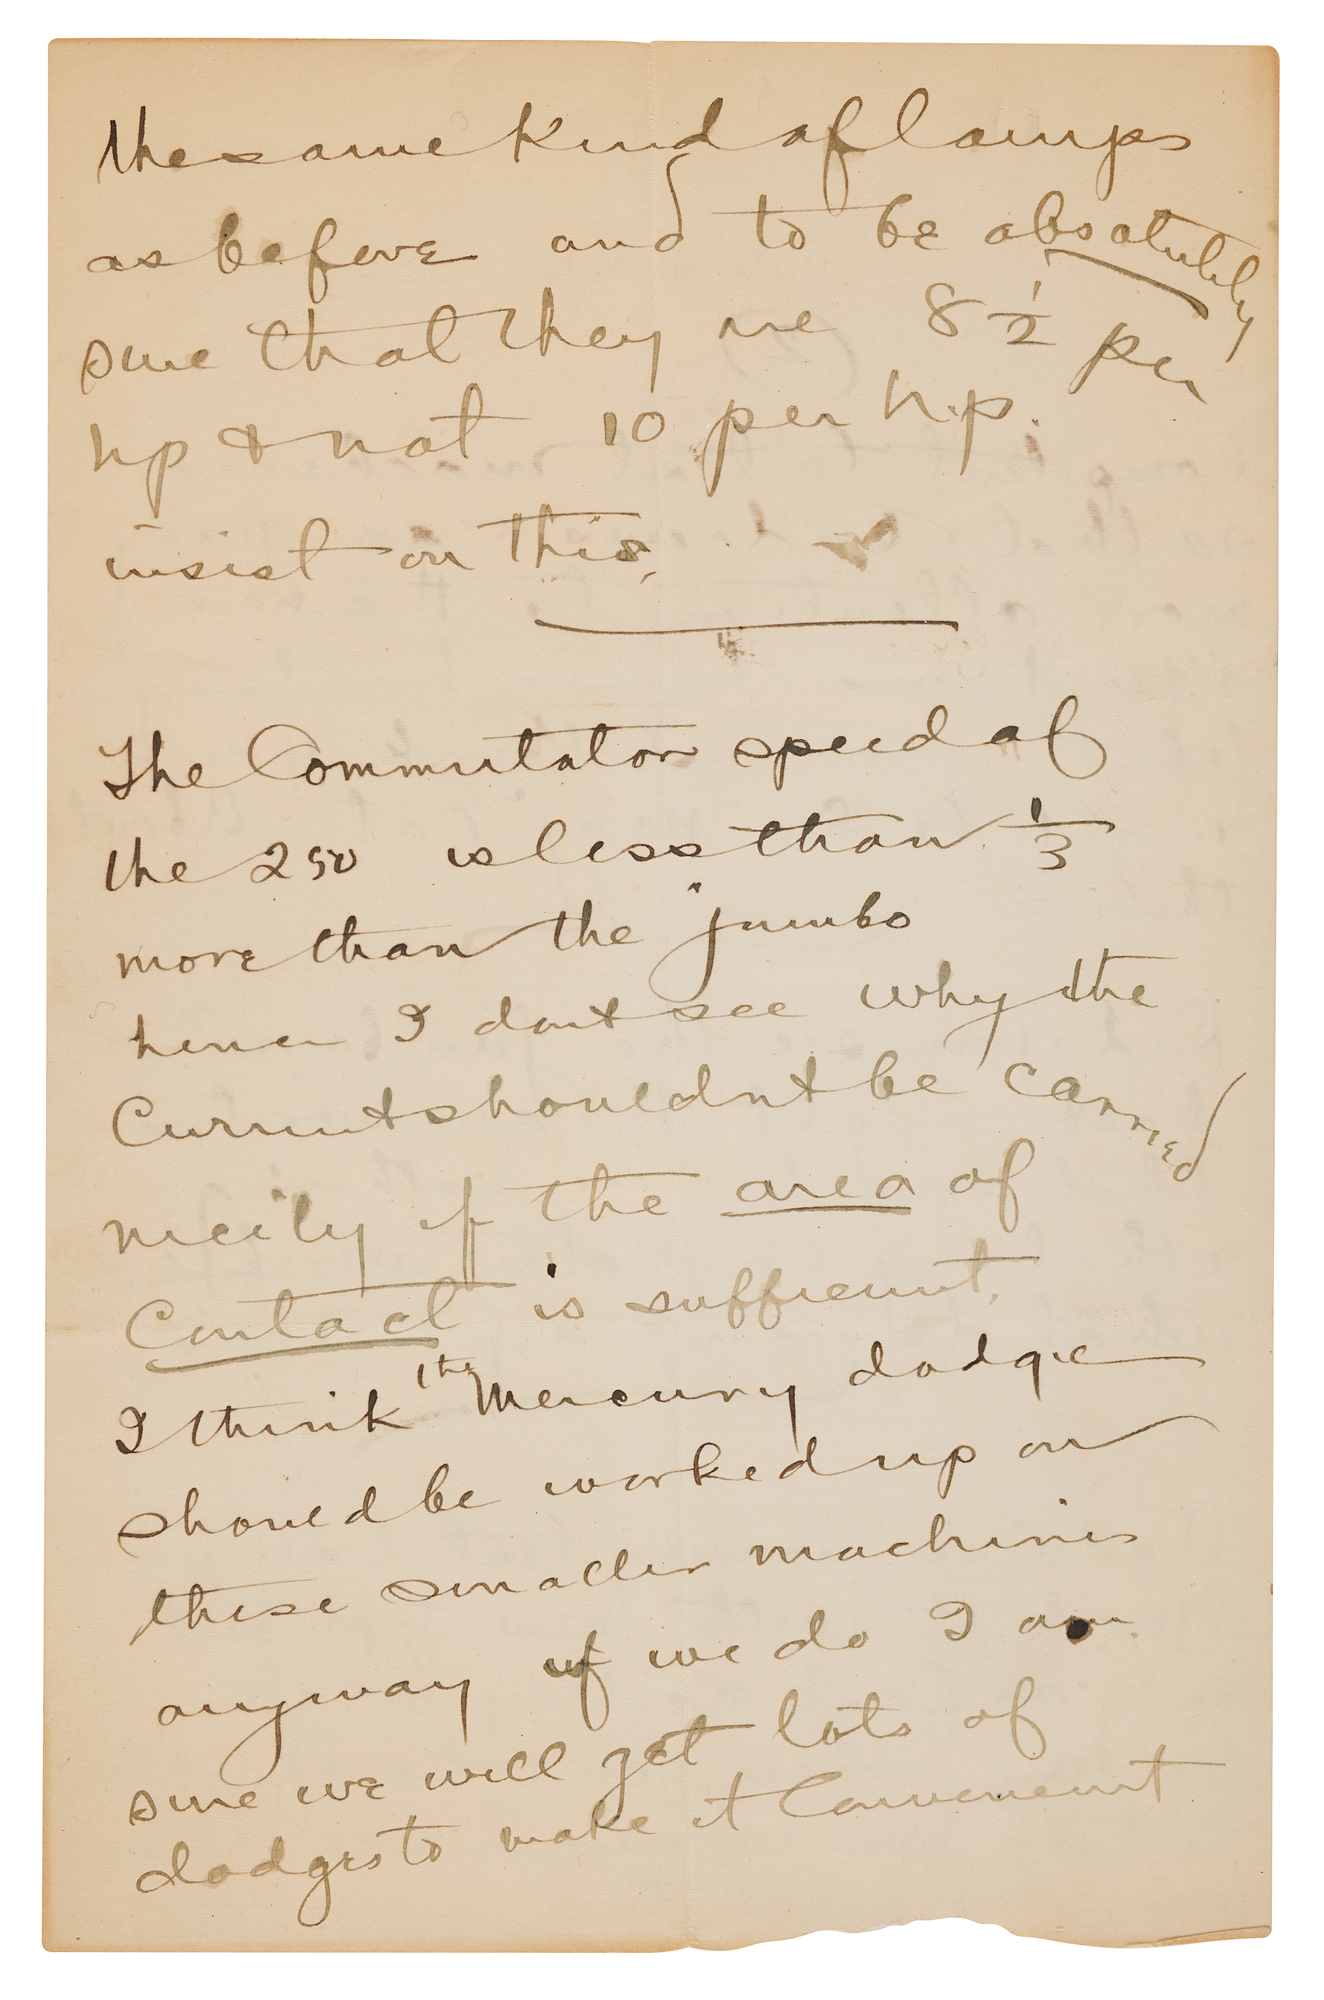 the same kind of lamps
as before and to be absolutely
sure that they are 8 1/2 per
hp & not 10 per h.p.
insist on this,
The Commutator speed of
the 250 is less than 1/3
more than the "jumbo
hence I dont see why the
Current shouldnt be carried
nicely if the area of
Contact is sufficient,
I think the Mercury dodge
should be worked up on
these smaller machines
anyway if we do I am
sure we will get lots of
dodges to make it Convenient